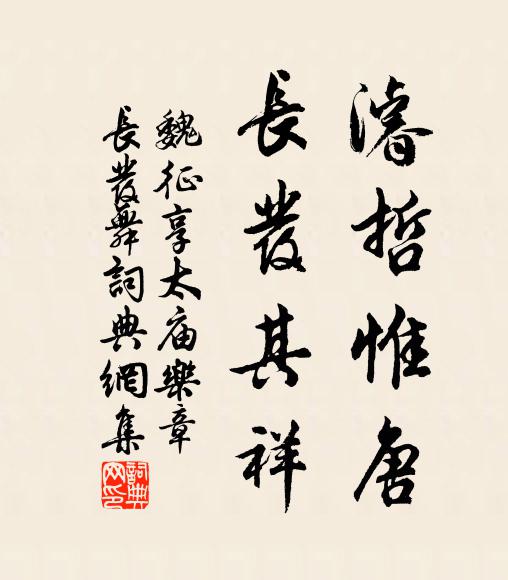 濬哲惟唐
長發其祥
魏征享太庙樂章
長發舞詞典網集
詞典网印